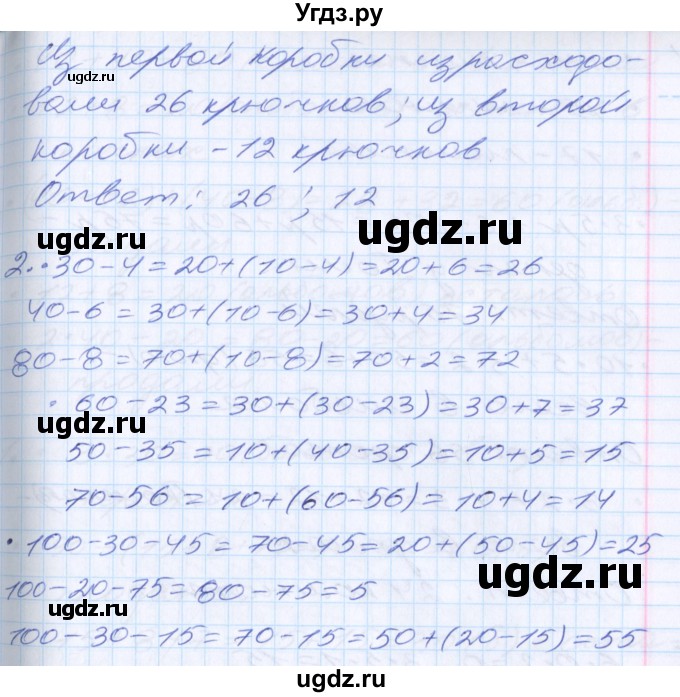 Угдз.ру
Из первой коробки израсходо-
вали 26 крючков, из второй
коробки - 12 крючков
Ответ: 26 ; 12
ugdz.ru
ugdz.ru
2. • 30 - 4 = 20 + (10 - 4) = 20 + 6 = 26
40 - 6 = 30 + (10 - 6) = 30 + 4 = 34
80 - 8 = 70 + (10 - 8) = 70 + 2 = 72
ugdz.ru
• 60 - 23 = 30 + (30 - 23) = 30 + 7 = 37
50 - 35 = 10 + (40 - 35) = 10 + 5 = 15
ugdz.ru
70 - 56 = 10 + (60 - 56) = 10 + 4 = 14
• 100 - 30 - 45 = 70 - 45 = 20 + (50 - 45) = 25
ugdz.ru
100 - 20 - 75 = 80 - 75 = 5
ugdz.ru
100 - 30 - 15 = 70 - 15 = 50 + (20 - 15) = 55
ugdz.ru